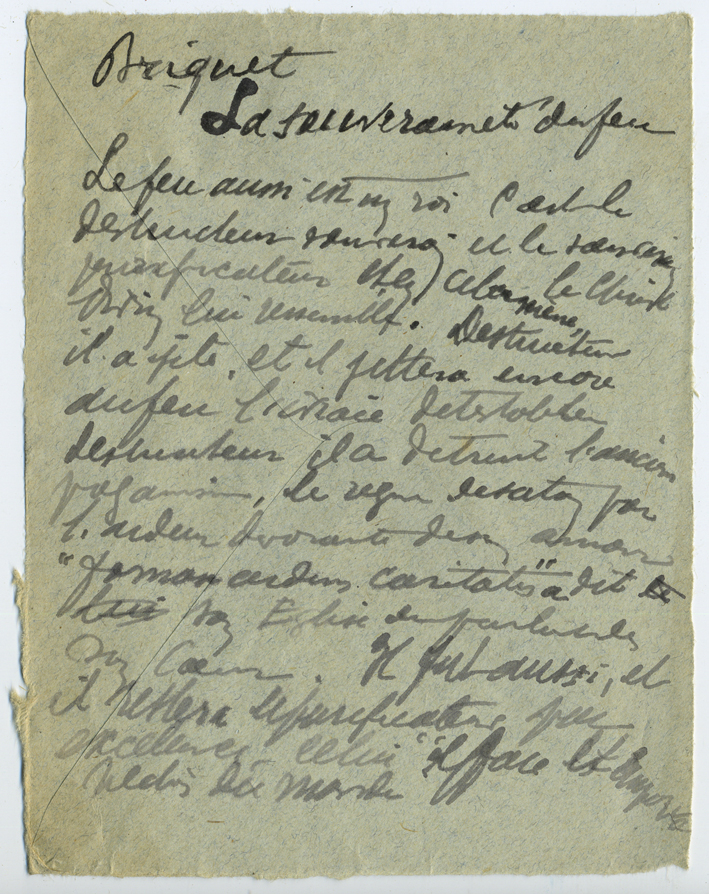 Briquet
La souveraineté du feu
Le feu aussi est un roi C'est le
destructeur souverain et le souverain
purificateur et en cela même, le Christ
Divin lui ressemble. Destructeur
il a jeté, et il jettera encore
au feu l'ivraie détestable
destructeur il a détruit l'ancien
paganisme, le règne de satan par
l'ardeur dévorante de son amour
"fornax ardens caritatis" a dit
son Eglise en parlant de
son Cœur. Il fut aussi, et
il restera le purificateur par
excellence celui "il efface et emporte
péchés du monde